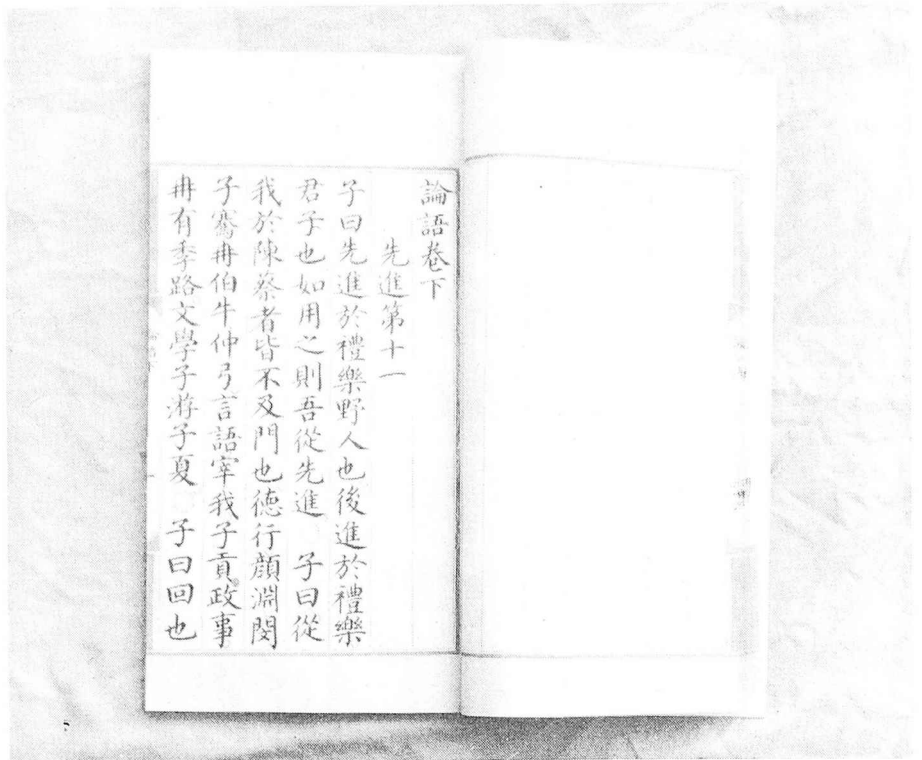 論語卷下
先進第十一
子曰先進於禮樂野人也後進於禮樂
君子也如用之則吾從先進 子曰從
我於陳蔡者皆不及門也德行顏淵閔
子騫冉伯牛仲弓言語宰我子貢政事
冉有季路文學子游子夏 子曰回也